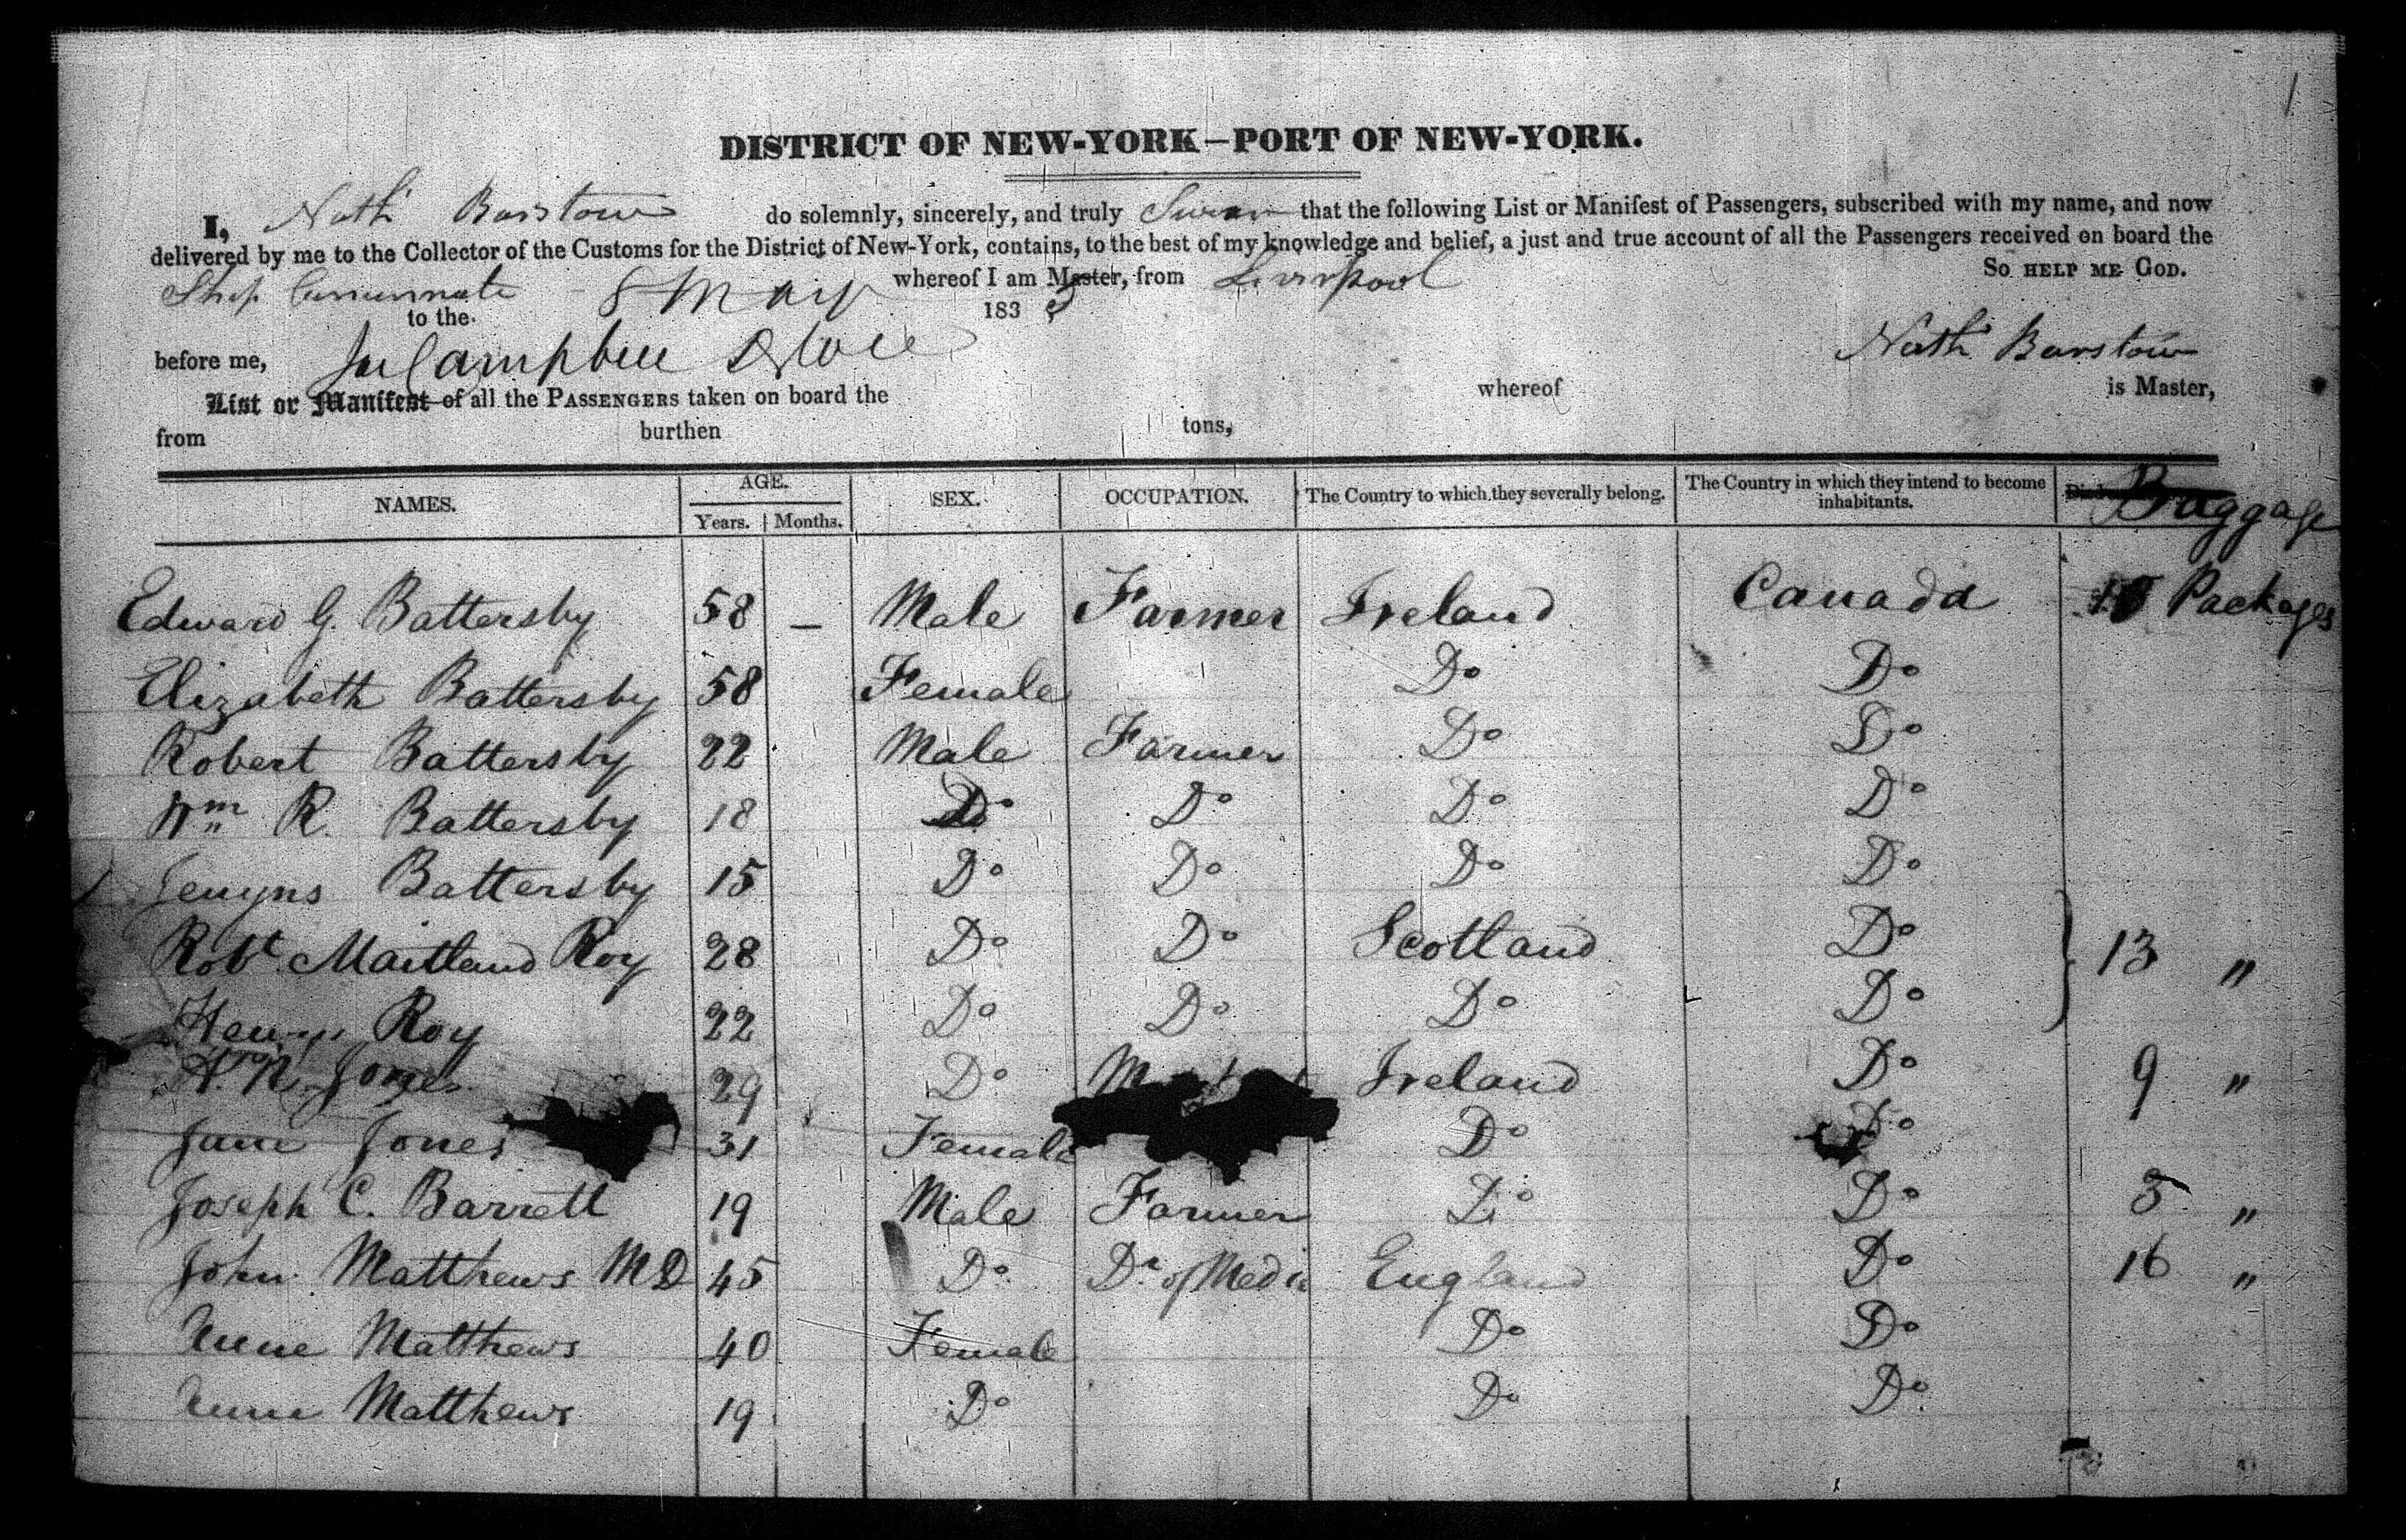 DISTRICT OF NEW-YORK—PORT OF NEW-YORK.
I, Nath Barstow do solemnly, sincerely, and truly Swear that the following List or Manifest of Passengers, subscribed with my name, and now
delivered by me to the Collector of the Customs for the District of New-York, contains, to the best of my knowledge and belief, a just and true account of all the Passengers received on board the
Ship Cincinnati whereof I am Master, from Liverpool So HELP ME GOD.
to the 8 May 183
before me, Campbell Nath Barstow
List or Manifest of all the PASSENGERS taken on board the whereof is Master,
from burthen tons,
NAMES. AGE. Years. Months. SEX. OCCUPATION. The Country to which they severally belong. The Country in which they intend to become inhabitants. Baggage
Edward G. Battersby 58 — Male Farmer Ireland Canada Packages
Elizabeth Battersby 58 Female Do Do
Robert Battersby 22 Male Farmer Do Do
Wm R. Battersby 18 Do Do Do Do
Battersby 15 Do Do Do Do
Robt Maitland Roy 28 Do Do Scotland Do 13 "
Henry Roy 22 Do Do Do Do
Jones 29 Do Ireland Do 9 "
Jane Jones 31 Female Do Do
Joseph C. Barrett 19 Male Farmer Do Do "
John Matthews MD 45 Do Dr of Medi England Do 16 "
Anne Matthews 40 Female Do Do
Anne Matthews 19 Do Do Do